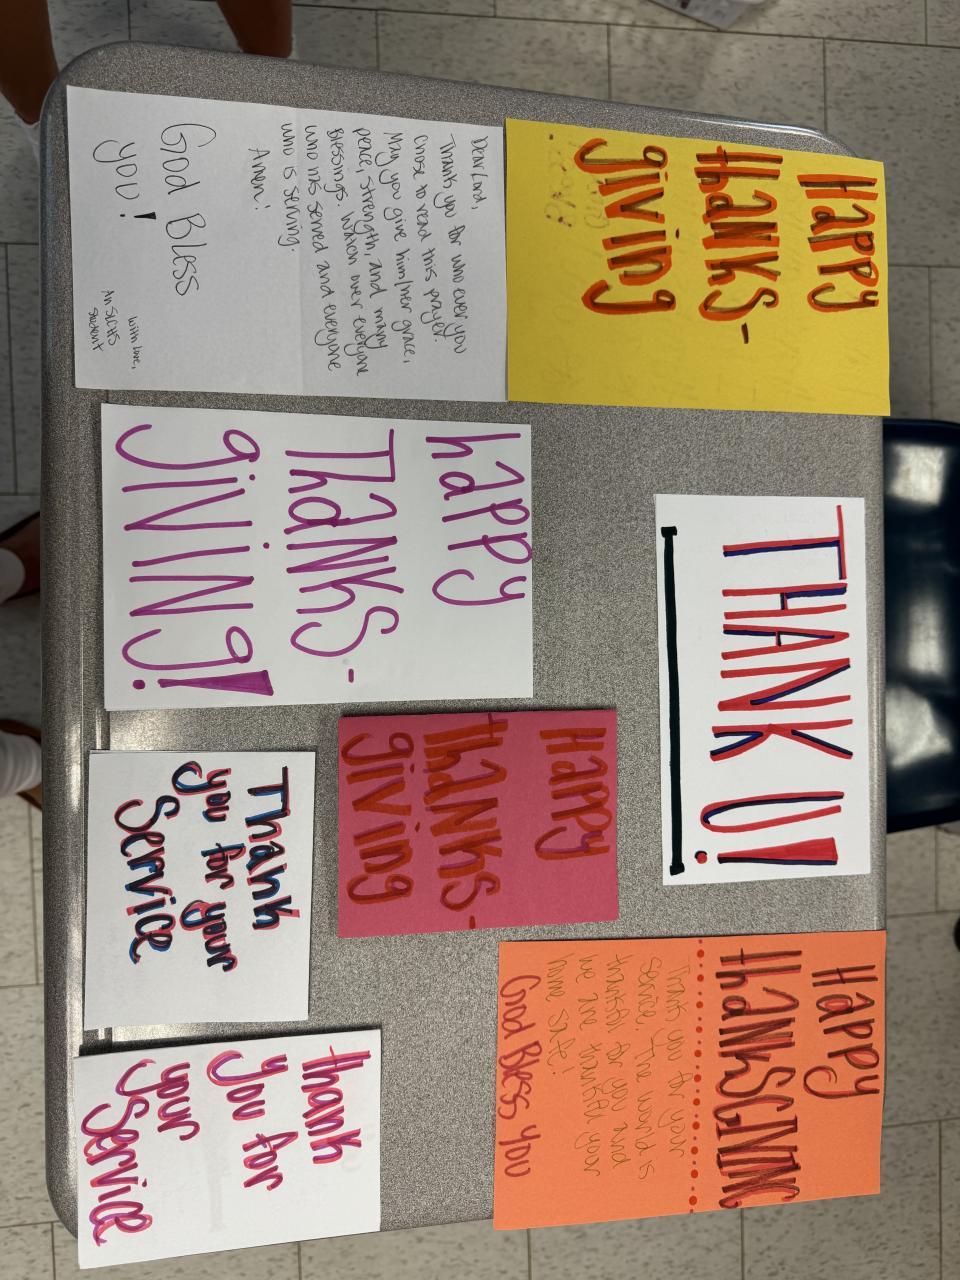 Happy
Thanks-
giving
THANK U!
Happy
Thanksgiving
Thank you for your
service. The world is
thankful for you and
we are thankful your
home safe!
God Bless You
Dear Lord,
Thank you for who ever you
chose to read this prayer.
May you give him/her grace,
peace, strength, and many
Blessings. Watch over everyone
who has served and everyone
who is serving.
Amen!
God Bless
you!
with love,
An SLCHS
student
happy
Thanks-
giving!
Happy
Thanks-
giving
Thank
you for your
Service
thank
you for
your
Service